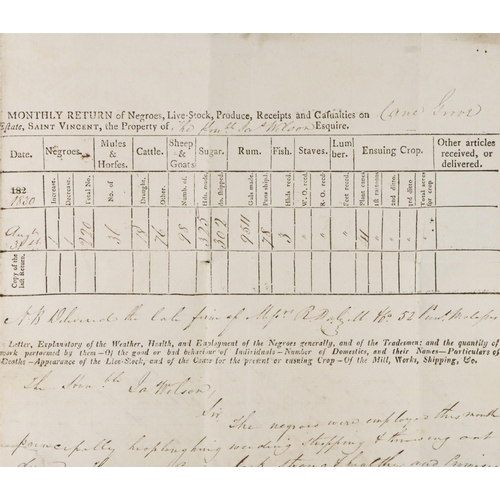 MONTHLY RETURN of Negroes, Live-Stock, Produce, Receipts and Casualties on Cane Grove
Estate, SAINT VINCENT, the Property of The Honble Jas Wilson Esquire.
Date. Negroes. Mules & Horses. Cattle. Sheep & Goats Sugar. Rum. Fish. Staves. Lumber. Ensuing Crop. Other articles received, or delivered.
182 Increase. Decrease. Total No. No. of Draught. Other. Numb. of Hds. made. Do. shipped. Gals. made. Puns. ship'd. Hhds. recd. W. O. recd. R. O. recd. Feet recd. Plant canes 1st ratoons 2nd ditto. 3rd ditto Total acres for crop.
1820
Augt 31st 1 1 220 31 19 76 98 325 302 9511 78 3 11
Copy of the last Return.
NB Delivered the late firm of Messrs R Dalzell & Co 52
Letter, Explanatory of the Weather, Health, and Employment of the Negroes generally, and of the Tradesmen; and the quantity of
work performed by them—Of the good or bad behaviour of Individuals—Number of Domestics, and their Names—Particulars of
Deaths—Appearance of the Live-Stock, and of the Canes for the present or ensuing Crop—Of the Mill, Works, Shipping, &c.
The Honble Jas Wilson,
Sir The negroes were employed this month
principally weeding stripping & turning out
strong & healthy and